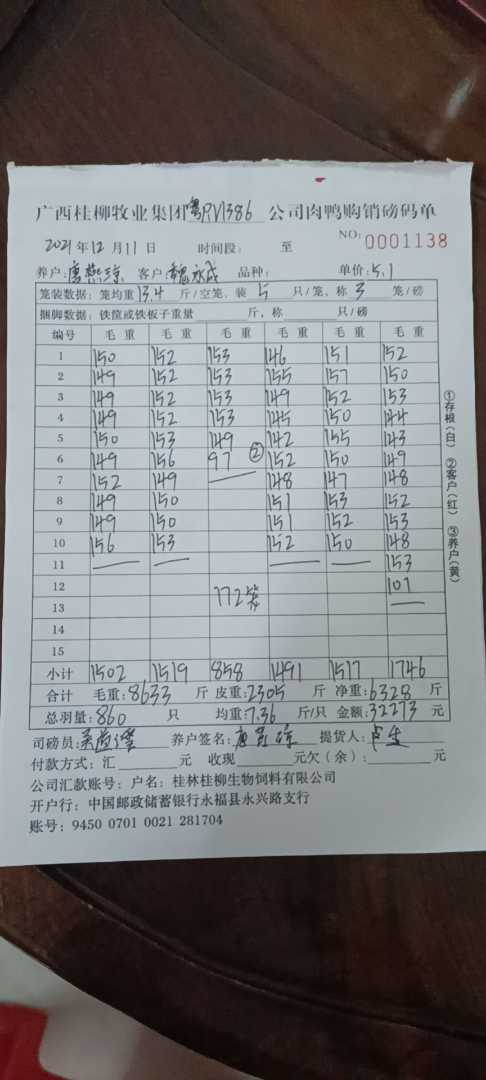 广西桂柳牧业集团粤RV1386公司肉鸭购销磅码单
NO: 0001138
2021年12月11日 时间段: 至
养户: 唐燕琼 客户: 魏永成 品种: 单价: 5.1
笼装数据: 笼均重13.4斤/空笼, 装5只/笼, 称3笼/磅
捆脚数据: 铁筐或铁板子重量 斤, 称 只/磅
编号 毛重 毛重 毛重 毛重 毛重 毛重
1 150 152 153 146 151 152
2 149 152 153 155 157 150
3 149 152 153 149 152 153
4 149 152 153 145 150 144
5 150 153 149 142 155 143
6 149 156 97 ② 152 150 149
7 152 149 — 148 147 148
8 149 150 151 153 152
9 149 150 151 152 153
10 156 153 152 150 148
11 — — — — 153
12 172笼 101
13 —
14
15
小计 1502 1519 858 1491 1517 1746
合计 毛重: 8633 斤 皮重: 2305 斤 净重: 6328 斤
总羽量: 860 只 均重: 7.36 斤/只 金额: 32273 元
司磅员: 养户签名: 唐燕琼 提货人:
付款方式: 汇 元 收现 元欠(余): 元
公司汇款账号: 户名: 桂林桂柳生物饲料有限公司
开户行: 中国邮政储蓄银行永福县永兴路支行
账号: 9450 0701 0021 281704
①存根(白) ②客户(红) ③养户(黄)